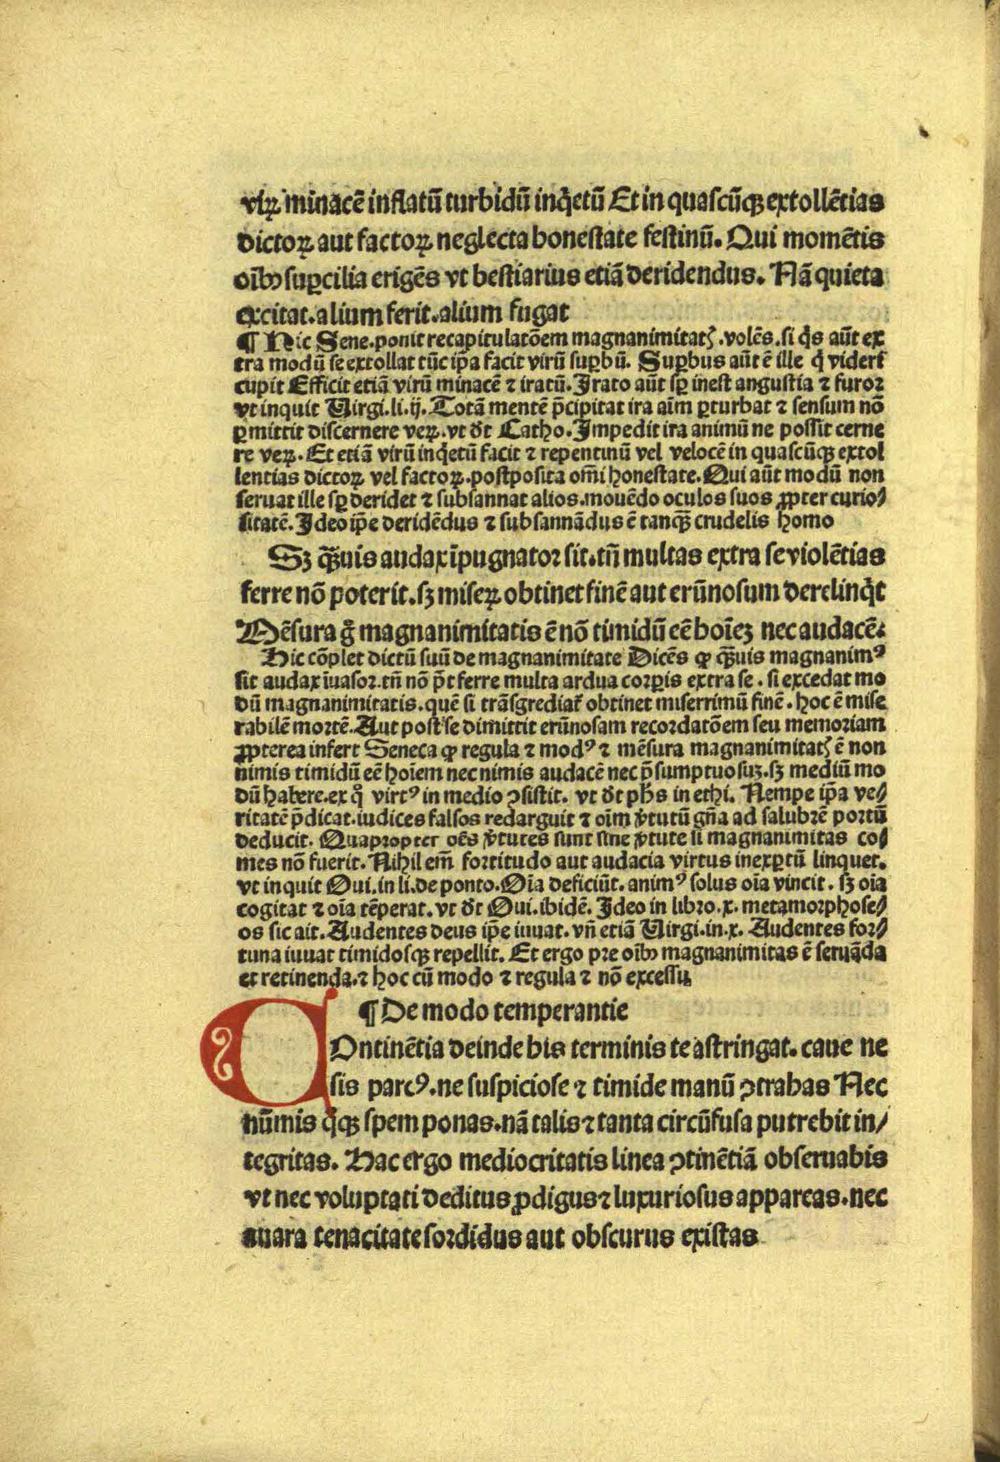 viꝝ minacē inflatū turbidū inq̇etū Et in quascūqꝫ extollētias
dictoꝝ aut factoꝝ neglecta honestate festinū. Qui momētis
oībꝰ suꝑcilia erigēs vt bestiarius etiā deridendus. Nā quieta
excitat. alium ferit. alium fugat
¶ Hic Sene. ponit recapitulatōem magnanimitatꝭ. volēs. si q̇s aūt ex
tra modū se extollat tūc ip̄a facit virū suꝑbū. Suꝑbus aūt ē ille q̇ videri
cupit Efficit etiā virū minacē ⁊ iratū. Irato aūt sꝑ inest angustia ⁊ furor
vt inquit Virgi. li. ij. Totā mentē p̄cipitat ira aīm ꝑturbat ⁊ sensum nō
ꝑmittit discernere veꝝ. vt dt̄ Catho. Impedit ira animū ne possit cerne
re veꝝ. Et etiā virū inq̇etū facit ⁊ repentinū vel velocē in quascūqꝫ extol
lentias dictoꝝ vel factoꝝ. postposita om̄i honestate. Qui aūt modū non
seruat ille sꝑ deridet ⁊ subsannat alios. mouēdo oculos suos ꝓpter curio/
sitatē. Ideo ip̄e deridēdus ⁊ subsannādus ē tanqꝫ̄ crudelis homo
Sꝫ qꝫ̄uis audax īpugnator sit. tn̄ multas extra se violētias
ferre nō poterit. sꝫ miseꝝ obtinet finē aut erūnosum derelinq̇t
Mēsura gͦ magnanimitatis ē nō timidū eē hoīeꝫ nec audacē.
Hic cōplet dictū suū de magnanimitate Dicēs ꝙ qꝫ̄uis magnanimꝰ
sit audax īuasor. tn̄ nō p̄t ferre multa ardua corꝑis extra se. si excedat mo
dū magnanimitatis. quē si trāsgrediat̄ obtinet miserrimū finē. hoc ē mise
rabilē mortē. Aut post se dimittit erūnosam recordatōem seu memoriam
ꝓpterea infert Seneca ꝙ regula ⁊ modꝰ ⁊ mēsura magnanimitatꝭ ē non
nimis timidū eē hoīem nec nimis audacē nec p̄sumptuosuꝫ. sꝫ mediū mo
dū habere. ex q̊ virtꝰ in medio ꝯsistit. vt dt̄ ph̄s in ethi. Nempe ip̄a ve/
ritatē p̄dicat. iudices falsos redarguit ⁊ oīm v̇tutū gn̄a ad salubrē portū
deducit. Quapropter oēs v̇tutes sunt sine v̇tute si magnanimitas co/
mes nō fuerit. Nihil em̄ fortitudo aut audacia virtus inexꝑtū linquet.
vt inquit Oui. in li. de ponto. Oīa deficiūt. animꝰ solus oīa vincit. sꝫ oīa
cogitat ⁊ oīa tēperat. vt dt̄ Oui. ibidē. Ideo in libro. x. metamorphose/
os sic ait. Audentes deus ip̄e iuuat. vn̄ etiā Virgi. in. x. Audentes for/
tuna iuuat timidosqꝫ repellit. Et ergo pre oībꝰ magnanimitas ē seruāda
et retinenda. ⁊ hoc cū modo ⁊ regula ⁊ nō excessu
¶ De modo temperantie
COntinētia deinde his terminis te astringat. caue ne
sis parcꝰ. ne suspiciose ⁊ timide manū ꝯtrahas Nec
nūmis q̊qꝫ spem ponas. nā talis ⁊ tanta circūfusa putrebit in/
tegritas. Hac ergo mediocritatis linea ꝯtinētiā obseruabis
vt nec voluptati deditus ꝓdigus ⁊ luxuriosus appareas. nec
auara tenacitate sordidus aut obscurus existas